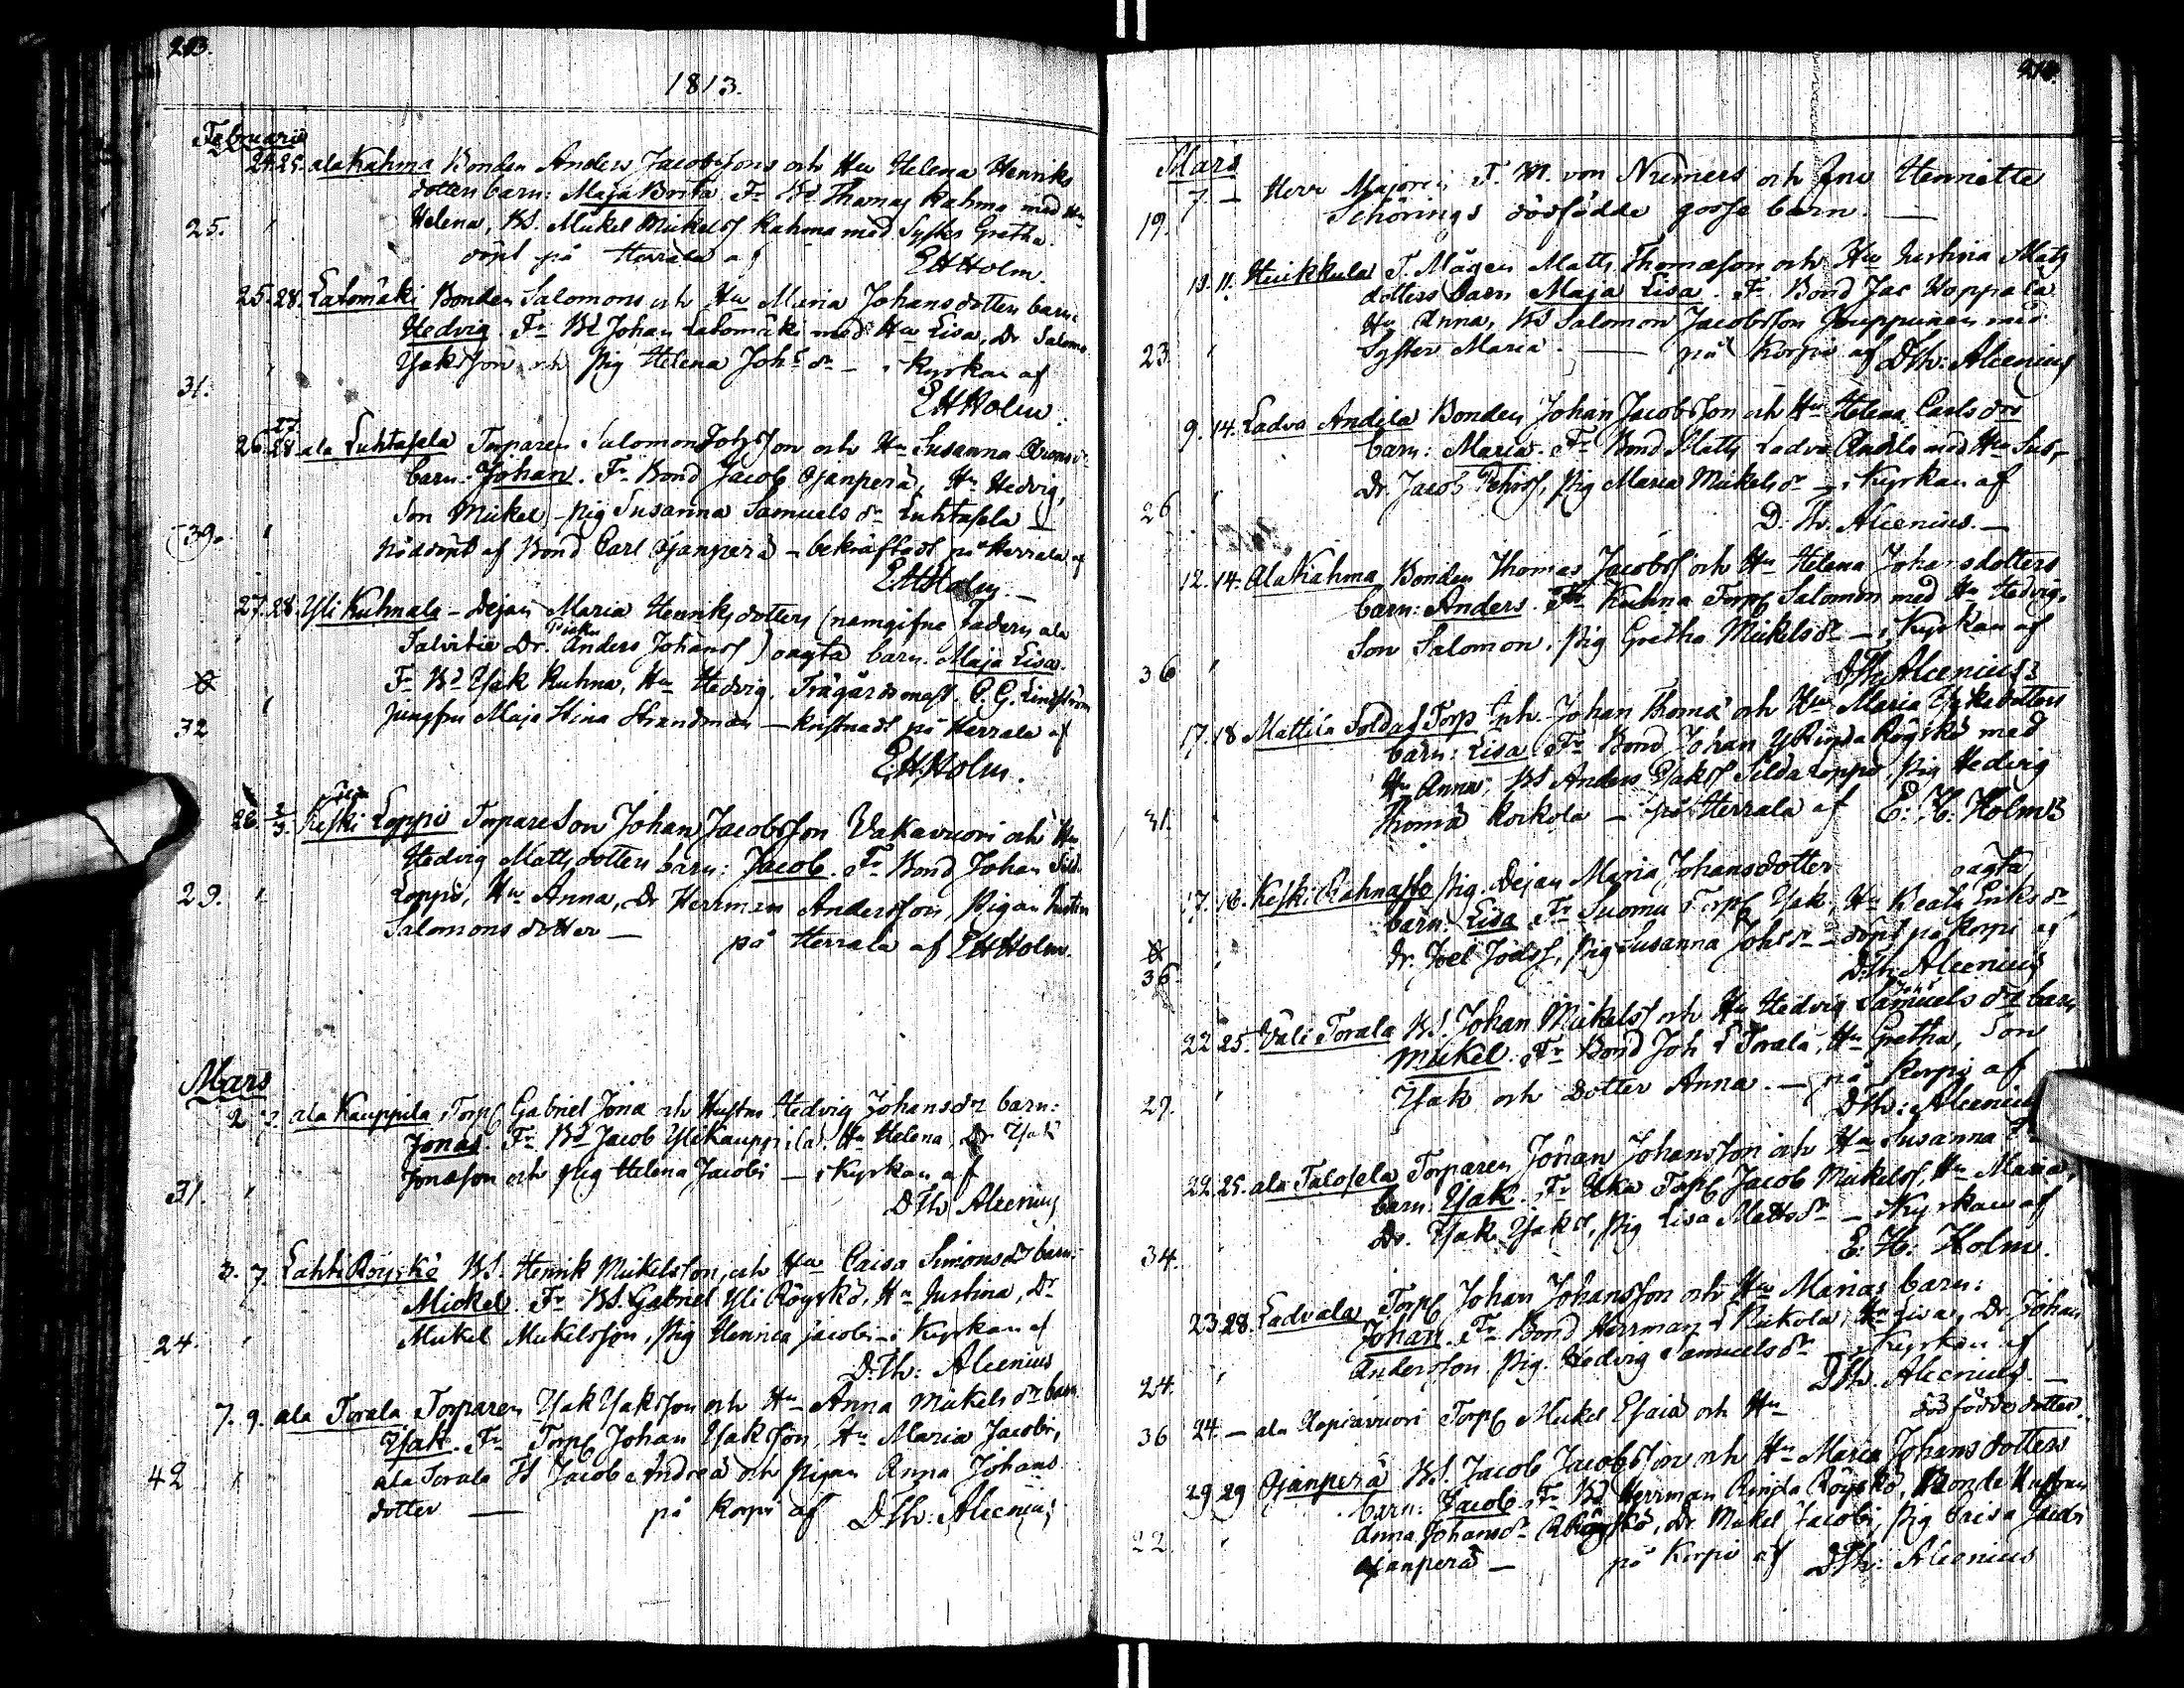 213.
1813.
Februarii
24. 25. ala Kahma Bonden Anders Jacobssons och Hu Helena Henriks
dotters barn: Maja Brita. Fr Bd Thomas Kahma med Hu
25. " Helena, BS. Mickel Mickelss Kahma med Syster Gretha.
döpt på Herrala af
EHHolm.
25. 28. Latomäki Bonden Salomons och Hu Maria Johansdotters barn:
Hedvig. Fr Bd Johan Latomäki med Hu Lisa, Dr Salomo
" Ysaksson och Pig Helena Johs dr – i Kyrkan af
31.
EHHolm.
27
26. 28. ala Luhtasela Torparen Salomon Johsson och Hu Susanna
barn: Johan. Fr Bond Jacob Ojanperä, Hu Hedvig,
Son Mickel – Pig Susanna Samuels dr Luhtasela –
39. " Nöddöpt af Bond Carl Ojanperä – bekräftadt på Herrala af
EHHolm. –
27. 28. Yli Kuhmala – Dejan Maria Henriksdotters (namgifne Fadern ala
Talvitie Dr. Anders Johanss) oägta barn. Maja Lisa.
Fr Bd Ysak Kuhna, Hu Hedvig. Trägårdsmast. C. G. Lindström
" Jungfru Maja Stina Strandman – kristnadt på Herrala af
32
EHHolm.
28. 2/3. Keski Loppi Torpare Son Johan Jacobsson Vakavuori och Hu
Hedvig Mattsdotters barn: Jacob. Fr Bond Johan Silda
29. " Loppi, Hu Anna, Dr Herrman Andersson, Pigan Justin
Salomonsdotter – på Herrala af EHHolm.
Mars
2. 7. ala Kauppila Torp Gabriel Jonæ och Hustru Hedvig Johansdr barn:
Jonas. Fr Bd Jacob Ylikauppila, Hu Helena, Dr Ysak
Jonasson och Pig Helena Jacobi – i Kyrkan af
31. "
DTh Alcenius
3. 7. Lahti Röyskö BS. Henrik Mickelsson, och Hu Caisa Simonsdr barn:
Mickel. Fr BS. Gabriel Yli Röyskö, Hu Justina, Dr
24. " Mickel Mickelsson, Pig Henrica Jacobi – i Kyrkan af
D.Th: Alcenius
7. 9. ala Torala Torparen Ysak Ysaksson och Hu Anna Mickels dr barn
Ysak. Fr Torp Johan Ysaksson, Hu Maria Jacobi,
42 " ala Torala Jacob Andreæ och Pigan Anna Johans
dotter – på Korpi af DTh: Alcenius
214.
Mars
7. – Herr Majoren F. M. von Numers och Fru Henriette
19. Schörings dödfödde gosse barn. –
10. 11. Heikkula F. Mågen Matts Thomasson och Hu Justina Matts
dotters barn Maja Lisa. Fr Bond Jac Hoppala
Hu Anna, BS Salomon Jacobsson Jouppinen med
23. " Syster Maria. – på Korpi af DTh: Alcenius
9. 14. Ladva Andila Bonden Johan Jacobsson och Hu Helena Carls drs
barn: Maria. Fr Bond Matts Ladva Andila med Hu Sus,
" Dr. Jacob Pehrss, Pig Maria Mickels dr – i Kyrkan af
26
D. Th. Alcenius. –
12. 14. Ala Kahma Bonden Thomas Jacobss och Hu Helena Johansdotters
barn: Anders. Fr Kuhna Torp Salomon med Hu Hedvig,
Son Salomon, Pig Gretha Mickels dr – i Kyrkan af
36 "
DTh Alcenius
17. 18 Mattila Soldat Torp Inh. Johan Thomæ och Hu Maria Ysaksdotters
barn: Lisa. Fr Bond Johan Y Rinda Röyskö med
Hu Anna, BS Anders Ysakss Silda Loppi, Pig Hedvig
31. " Thomæ Korkola – på Herrala af E: H: Holm
17. 18. Keski Rahnasto Pig. Dejan Maria Johansdotter oägta
barn: Lisa Fr Suomu Torp Ysak, Hu Beata Eriks dr
" Dr. Joel Joelss, Pig Susanna Johs dr – döpt på Korpi af
36
D.Th. Alcenius
22 25. Väli Torala BS. Johan Mickelss och Hu Hedvig Samuels dr barn
Mickel. Fr Bond Joh Torala, Hu Gretha, Son
" Ysak och dotter Anna. – på Korpi af
29.
DTh: Alcenius
22. 25. ala Talosela Torparen Johan Johansson och Hu Susanna
barn: Ysak. Fr Torp Jacob Mickelss, Hu Maria,
Dr. Ysak Ysaks, Pig Lisa Matts dr – i Kyrkan af
34. "
E. H. Holm.
23. 28. Ladvala Torp Johan Johansson och Hu Marias barn:
Johan. Fr Bond Herrman Nickola, Hu Lisa, Dr. Johan
" Andersson Pig. Hedvig Samuels dr – i Kyrkan af
24.
DTh. Alcenius. –
36 24. – ala Uopiavuori Torp Mickel Esaiæ och Hu dödfödde dotter.
29 29 Ojanperä BS. Jacob Jacobsson och Hu Maria Johansdotters
barn: Jacob. Fr Bd Herrman Rinda Röyskö, Bonde Hustrun
22. " Anna Johansdr Röyskö, Dr. Mickel Jacobi, Pig Caisa Jacobi
Ojanperä – på Korpi af DTh: Alcenius